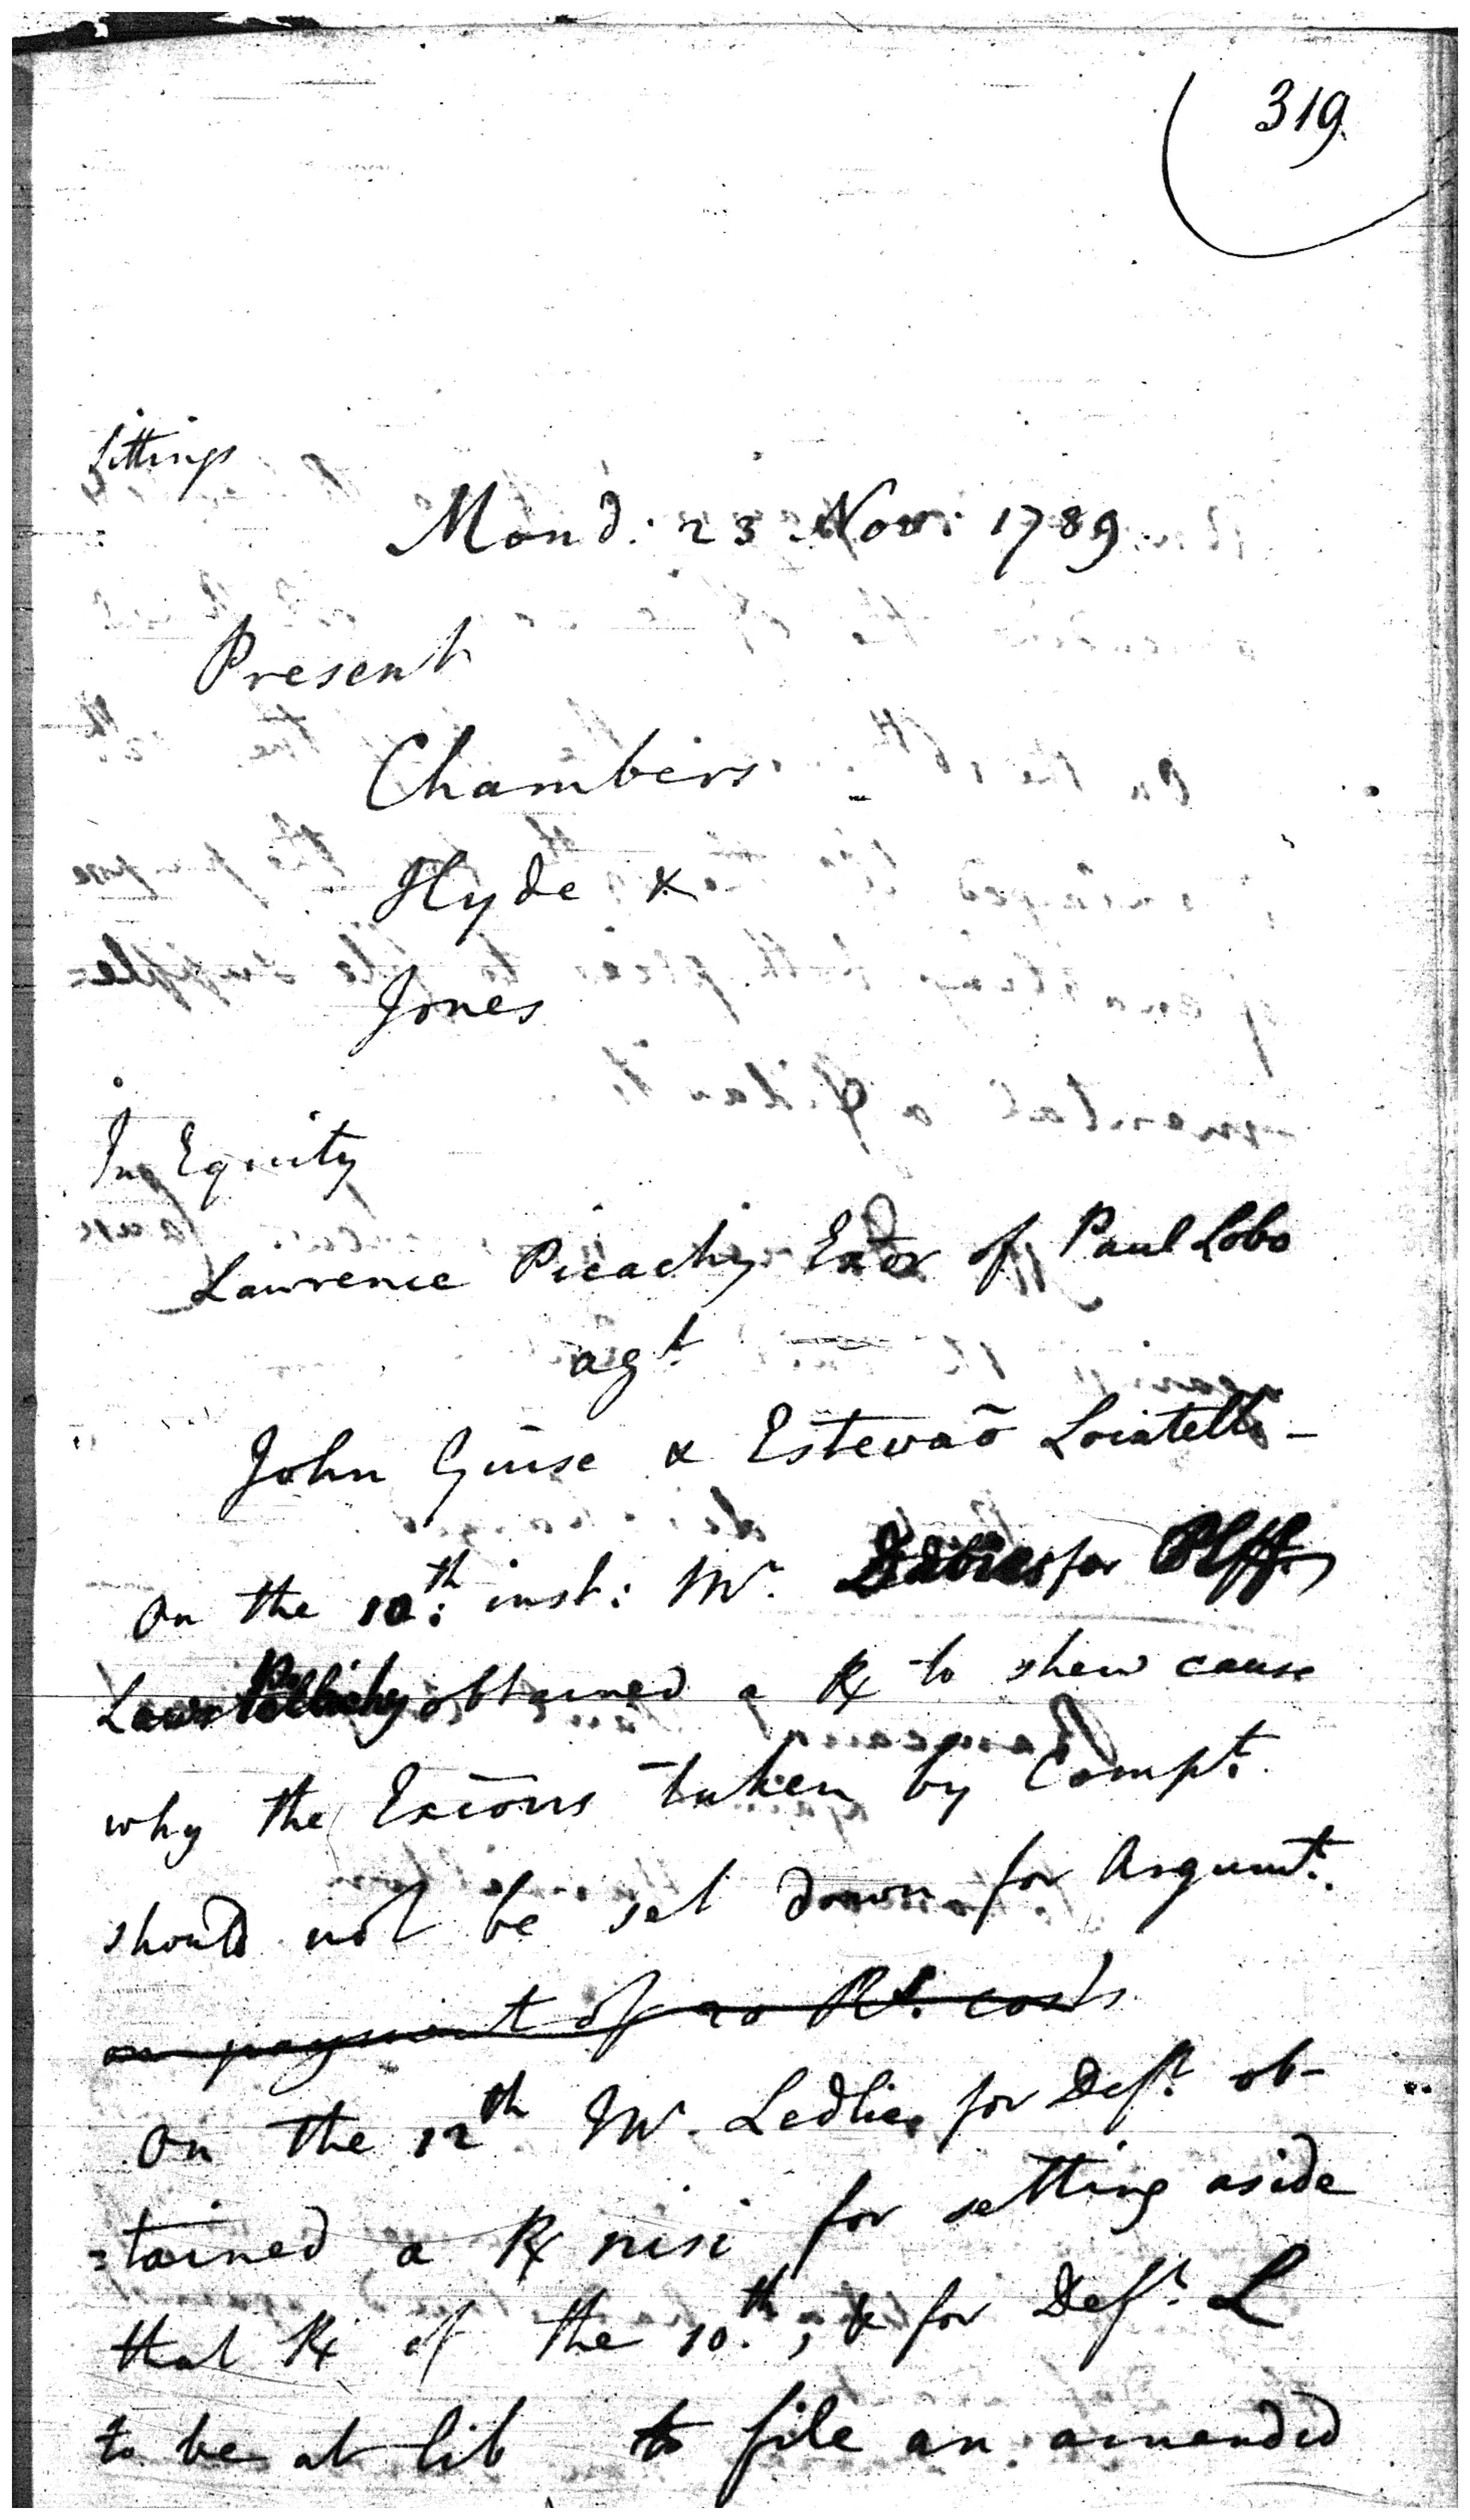 319
Sittings
Mond: 23 Nov: 1789
Present
Chambers
Hyde &
Jones
In Equity
Lawrence Picachy Exõr of Paul Lobo
agt
John Guise & Estevaõ Loiatelli -
On the 10th: inst: Mr. Davies for Plff
obtained a Rx to shew cause
why the Excõns taken by Compt.
should not be set down for Argumt.
on payment of 20 Rs. costs
On the 12th Mr. Ledlie, for Deft ob-
=tained a Rx nisi for setting aside
that Rx of the 10th., & for Deft. L
to be at lib to file an amended